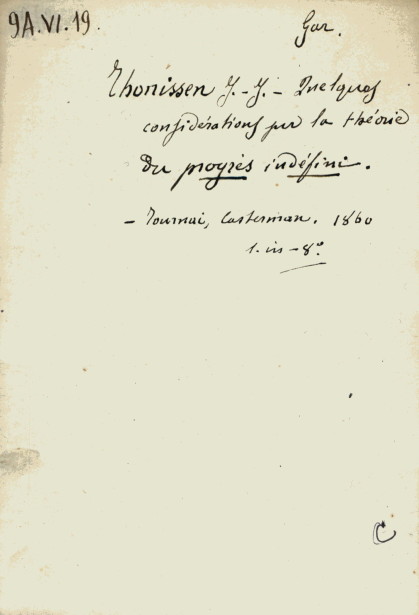 9A.VI.19.
Gar.
Thonissen J.-J. - Quelques
considérations sur la théorie
du progrès indéfini.
- Tournai, Casterman. 1860
1. in-8°
C